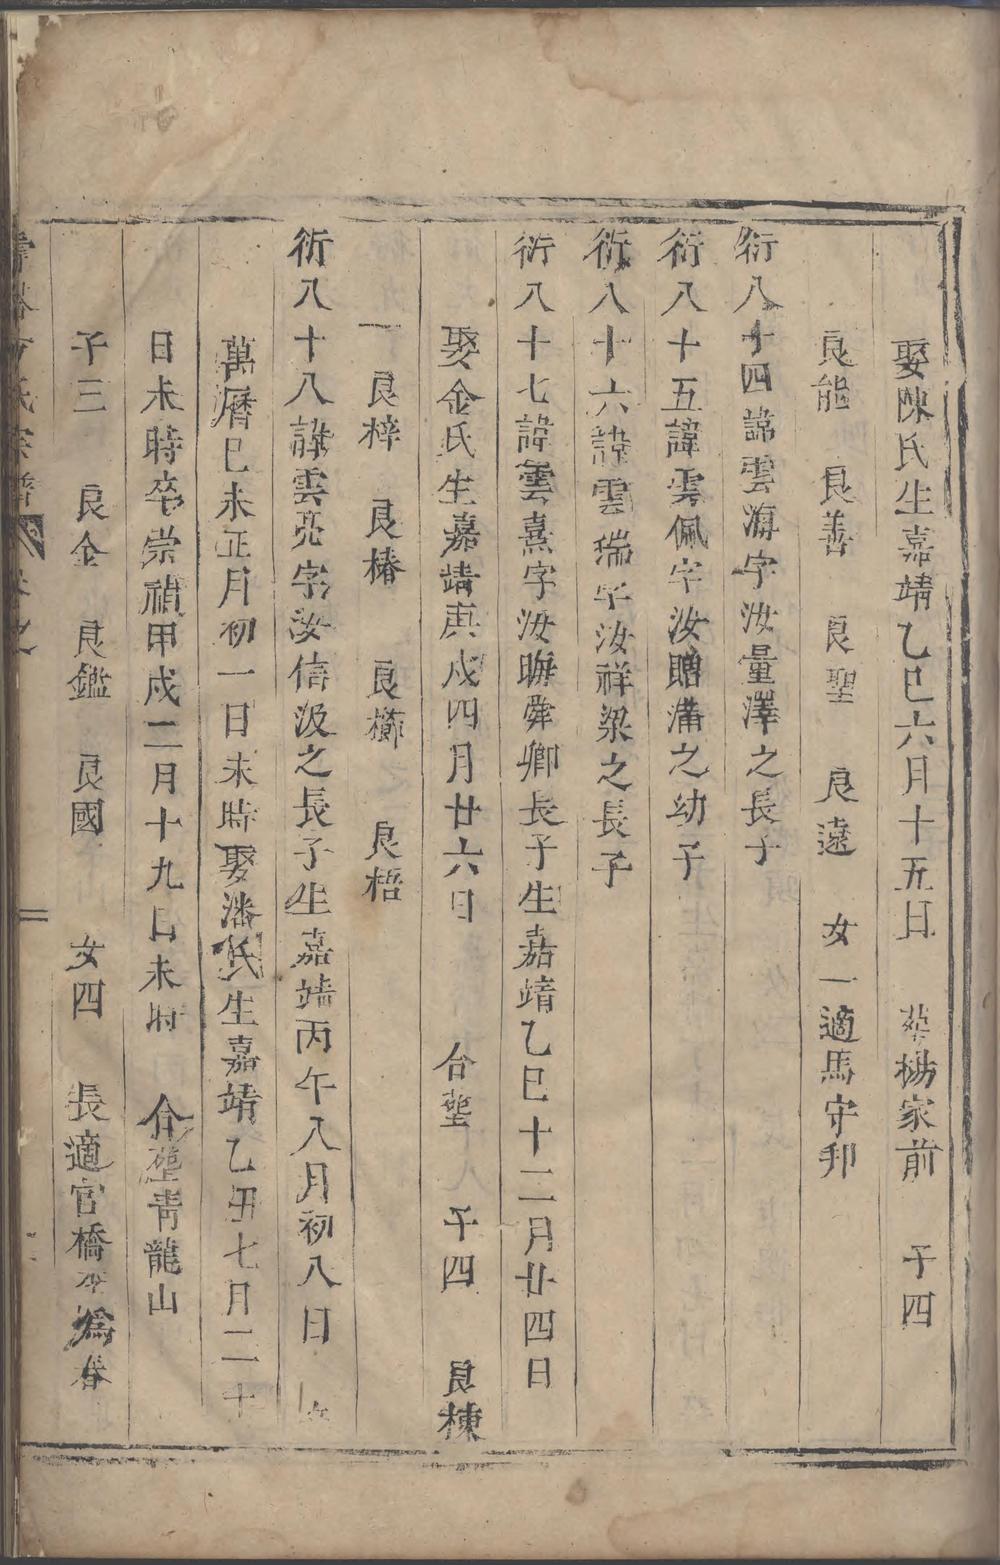 娶陳氏生嘉靖乙巳六月十五日 葬楊家前 子四
良能 良善 良聖 良遠 女一適馬守邦
衍八十四諱雲海字汝量澤之長子
衍八十五諱雲佩字汝贈滿之幼子
衍八十六諱雲瑞字汝祥梁之長子
衍八十七諱雲熹字汝晦舜卿長子生嘉靖乙巳十二月廿四日
娶金氏生嘉靖庚戌四月廿六日 合塟 子四 良棟
良梓 良椿 良櫛 良梧
衍八十八諱雲亮字汝信汲之長子生嘉靖丙午八月初八日
萬曆己未正月初一日未時娶潘氏生嘉靖乙丑七月二十
日未時卒崇禎甲戌二月十九日未時 合塟青龍山
子三 良金 良鑑 良國 女四 長適官橋李爲春
氏宗譜